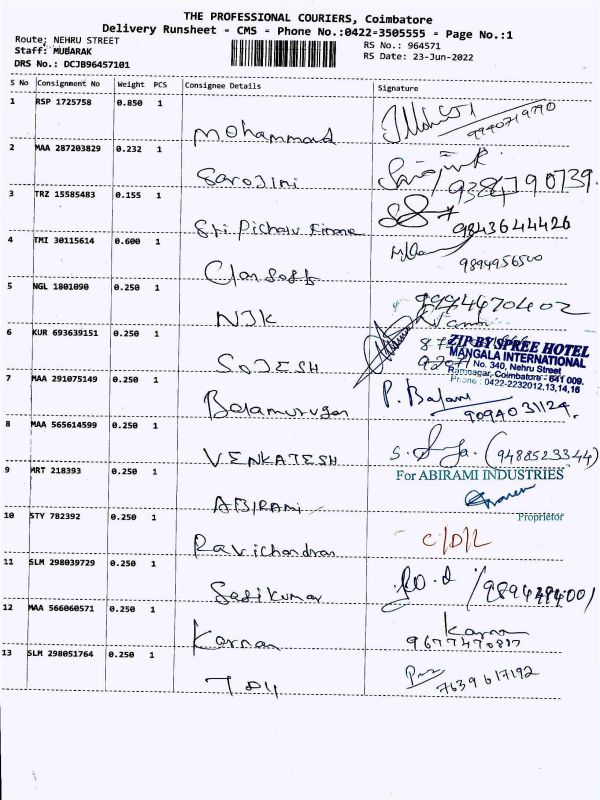 THE PROFESSIONAL COURIERS, Coimbatore
Delivery Runsheet - CMS - Phone No.:0422-3505555 - Page No.:1
Route: NEHRU STREET
RS No.: 964571
Staff: MUBARAK
RS Date: 23-Jun-2022
DRS No.: DCJB96457101
S No Consignment No Weight PCS Consignee Details Signature
1 RSP 1725758 0.850 1
Mohammad
9940719790
2 MAA 287203829 0.232 1
Sarojini
9384790739.
3 TRZ 15585483 0.155 1
Sri Pichalu Finance
9843644426
4 TMI 30115614 0.600 1
9894956500
5 NGL 1801090 0.250 1
NJK
6 KUR 693639151 0.250 1
SOJESH
ZIP BY SPREE HOTEL
MANGALA INTERNATIONAL
No. 340, Nehru Street
Ramnagar, Coimbatore - 641 009.
Phone : 0422-2232012,13,14,16
7 MAA 291075149 0.250 1
Balamurugan
P. Balani
9094031124.
8 MAA 565614599 0.250 1
VENKATESH
(9488523344)
9 MRT 218393 0.250 1
ABIRAMI
For ABIRAMI INDUSTRIES
Proprietor
10 STY 782392 0.250 1
Ravichandran
C/D/L
11 SLM 298039729 0.250 1
Sasikumar
12 MAA 566060571 0.250 1
Karnan
Karna
9677470817
13 SLM 298051764 0.250 1
7639617192